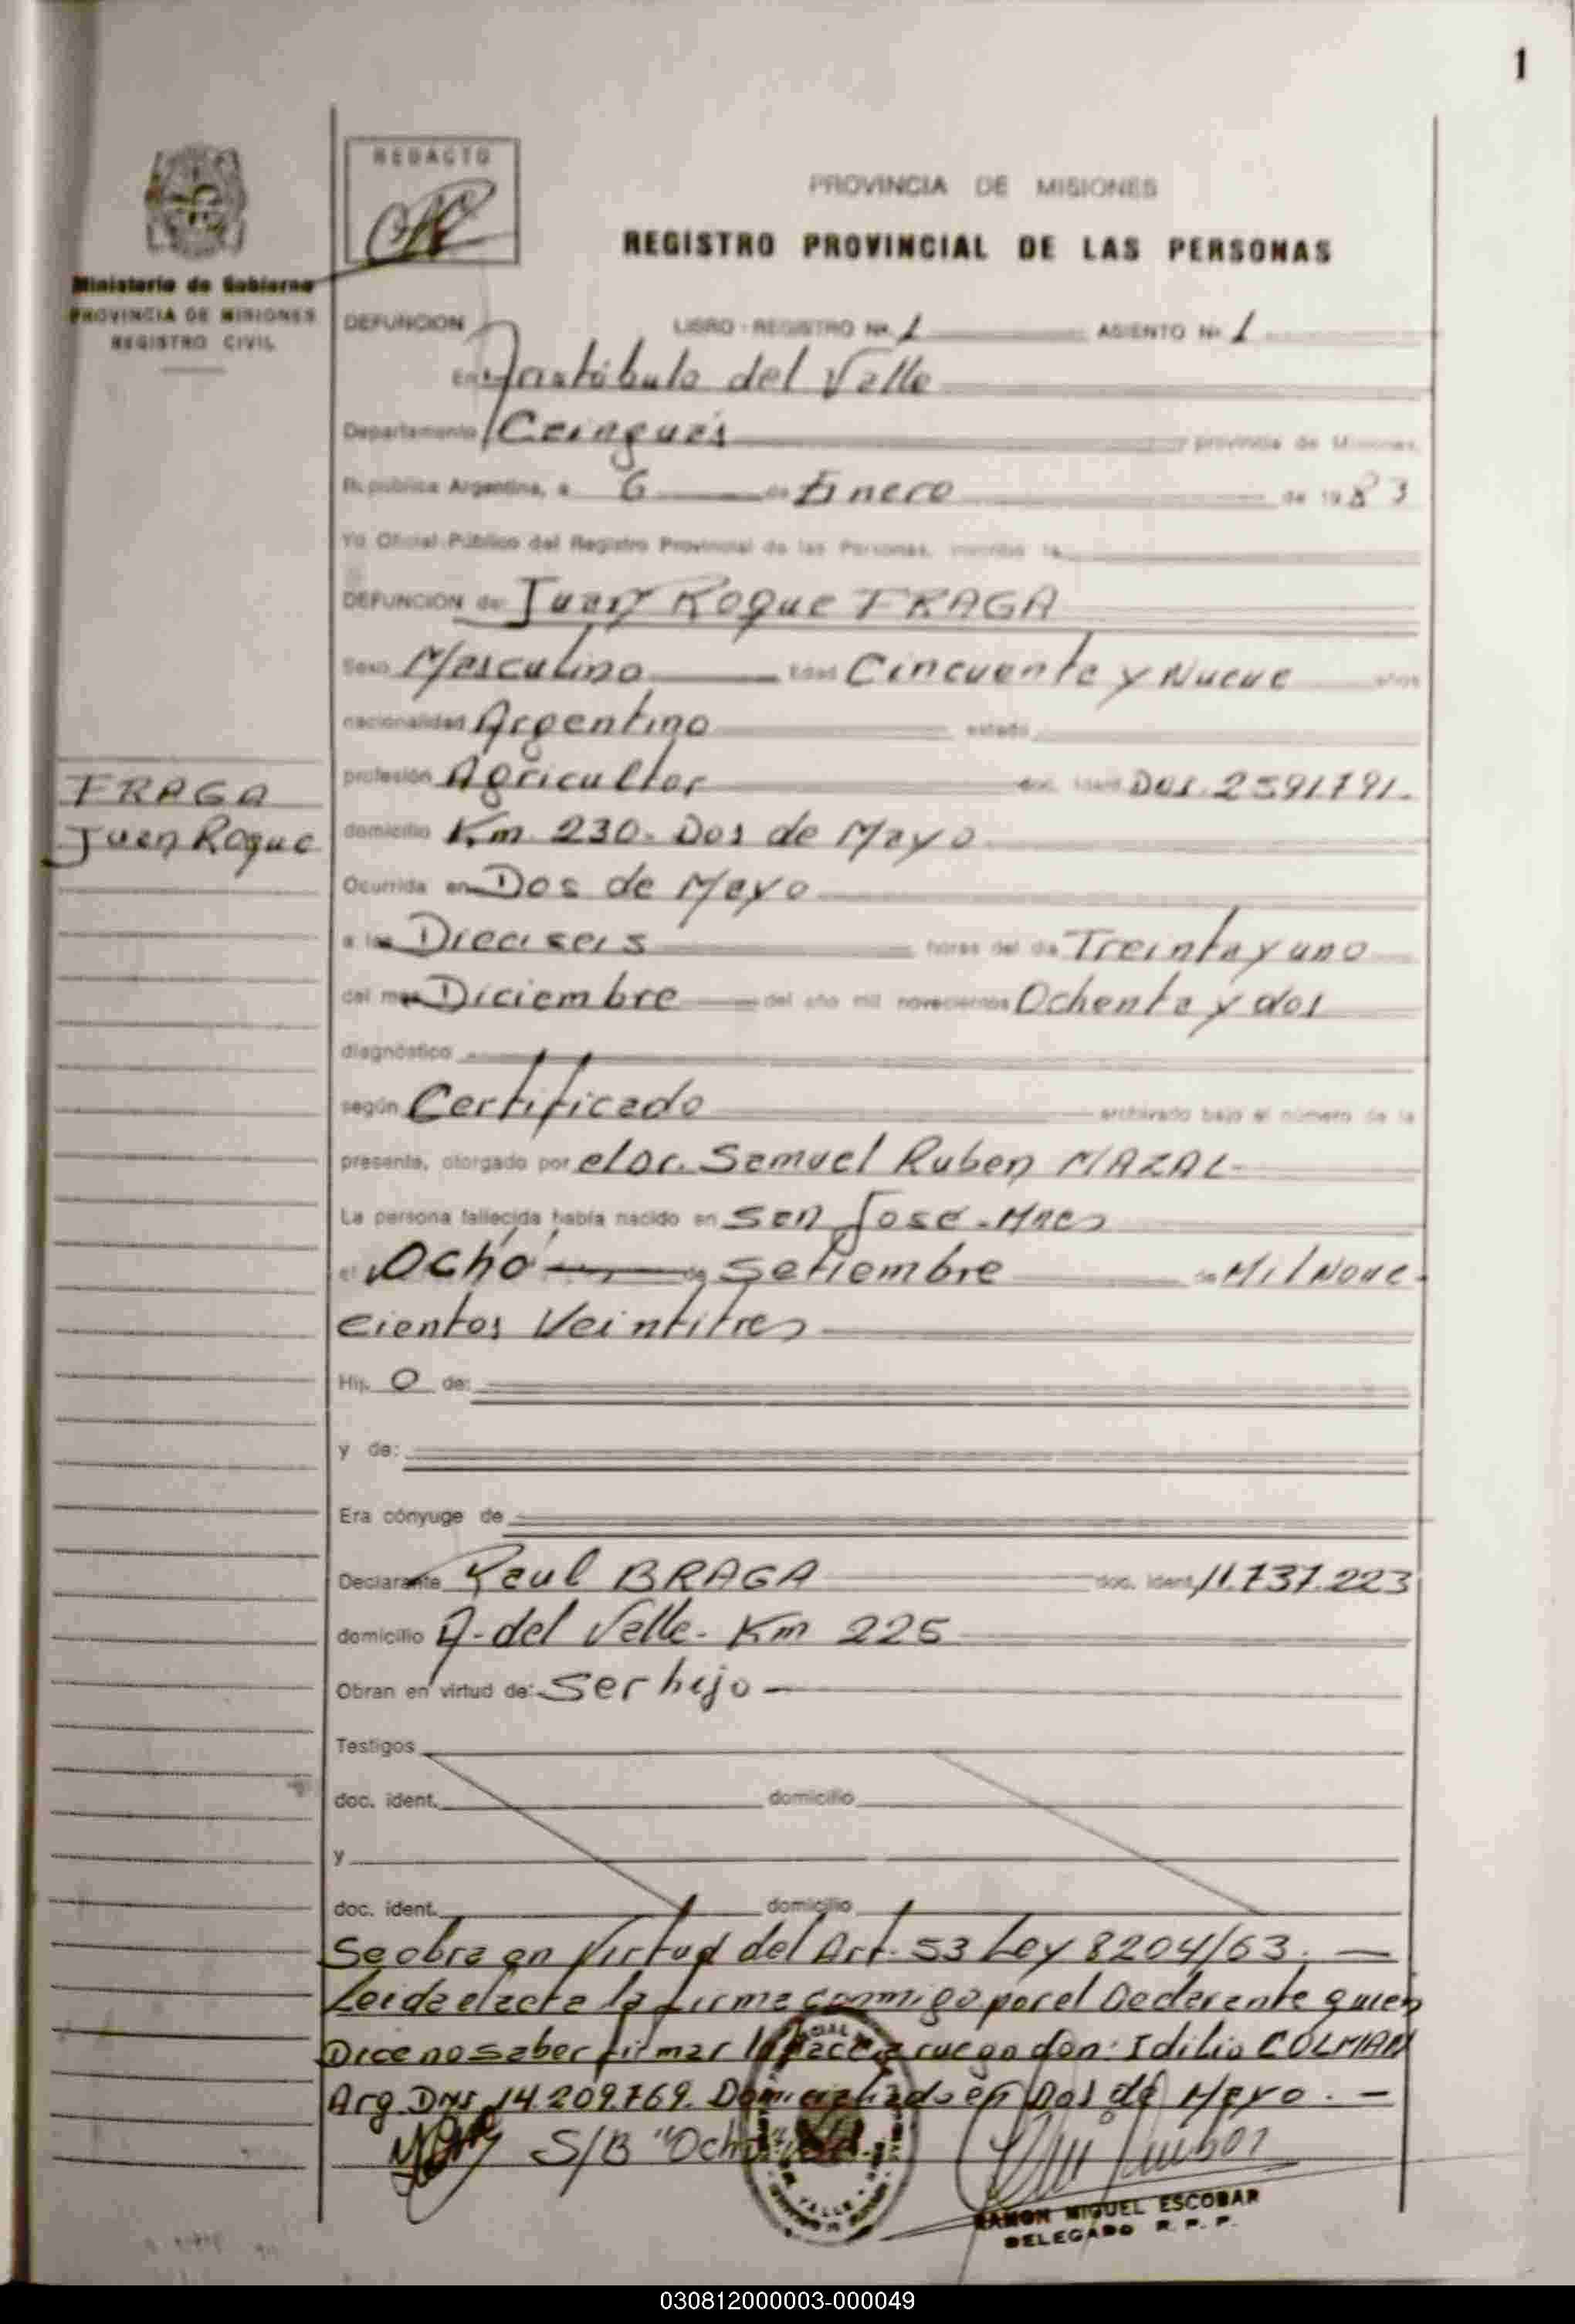 1
REDACTO
PROVINCIA DE MISIONES
REGISTRO PROVINCIAL DE LAS PERSONAS
Ministerio de Gobierno
PROVINCIA DE MISIONES
REGISTRO CIVIL
DEFUNCION LIBRO - REGISTRO Nº. 1 ASIENTO Nº 1
En Aristóbulo del Valle
Departamento Cainguás provincia de Misiones,
República Argentina, a 6 de Enero de 1983
Yo Oficial Público del Registro Provincial de las Personas, inscribo la
DEFUNCION de: Juan Roque FRAGA
Sexo Masculino Edad Cincuenta y Nueve años
nacionalidad Argentino estado
profesión Agricultor doc. ident. 2591791.
FRAGA
Juan Roque
domicilio Km. 230. Dos de Mayo
Ocurrida en Dos de Mayo
a las Dieciseis horas del día Treinta y uno
del mes Diciembre del año mil novecientos Ochenta y dos
diagnóstico
según Certificado archivado bajo el número de la
presente, otorgado por el Dr. Samuel Ruben MAZAL
La persona fallecida había nacido en San José - Mnes
el Ocho de Setiembre de Mil Nove-
cientos Veintitres
Hijo de:
y de:
Era cónyuge de
Declarante Raul BRAGA doc. ident. 11.737.223
domicilio A. del Valle. Km 225
Obran en virtud de: Ser hijo
Testigos
doc. ident. domicilio
y
doc. ident. domicilio
Se obra en Virtud del Art. 53 Ley 8204/63.
Leida el acta la firma conmigo por el Declarante quien
Dice no saber firmar lo hace a ruego don: Idilio COLMAN
Arg. 14.209.769. Domiciliado en Dos de Mayo.
S/B "Ocho"
RAMON MIGUEL ESCOBAR
DELEGADO R. P. P.
030812000003-000049